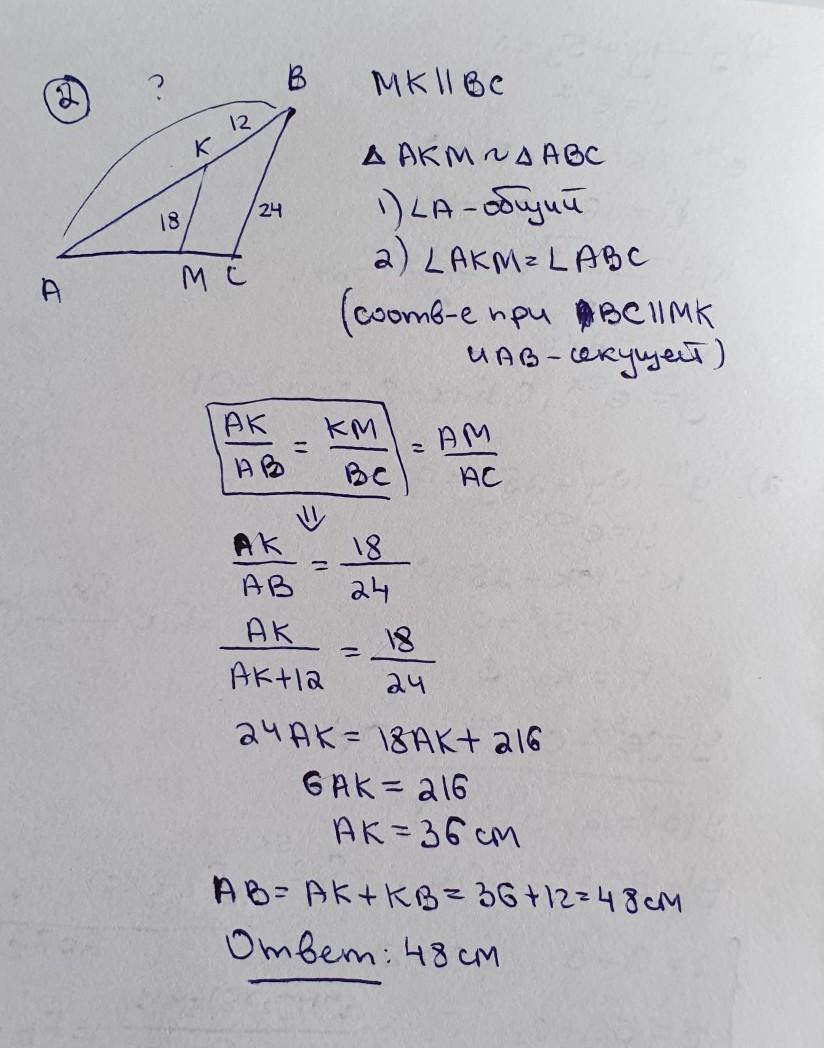 2
?
B
12
K
18
24
A
M
C
MK || BC
Δ AKM ~ Δ ABC
1) ∠A - общий
2) ∠AKM = ∠ABC
(соотв-е при BC || MK
и AB - секущей)
AK/AB = KM/BC = AM/AC
⇓
AK/AB = 18/24
AK/AK+12 = 18/24
24AK = 18AK + 216
6AK = 216
AK = 36 см
AB = AK + KB = 36 + 12 = 48 см
Ответ: 48 см